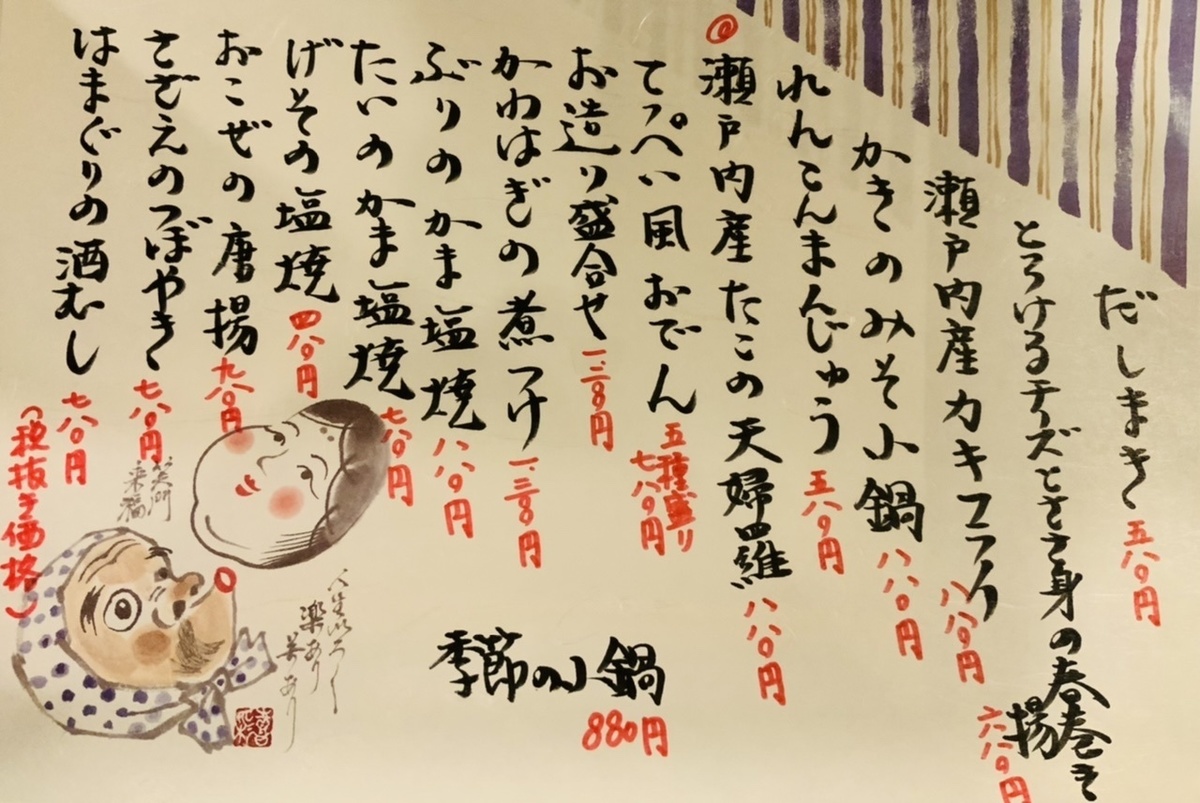 だしまき 五八〇円
とろけるチーズとささ身の春巻き揚 六八〇円
瀬戸内産カキフライ 八八〇円
かきのみそ小鍋 八八〇円
れんこんまんじゅう 五八〇円
瀬戸内産たこの天婦羅 八八〇円
てっぺい風おでん 五種盛り 七八〇円
お造り盛合せ
かわはぎの煮つけ
ぶりのかま塩焼 八八〇円
たいのかま塩焼 七八〇円
げその塩焼 四八〇円
おこぜの唐揚 九八〇円
さざえのつぼやき 七八〇円
はまぐりの酒むし 七八〇円
(税抜き価格)
季節の小鍋
880円
笑門
来福
楽あり
苦あり